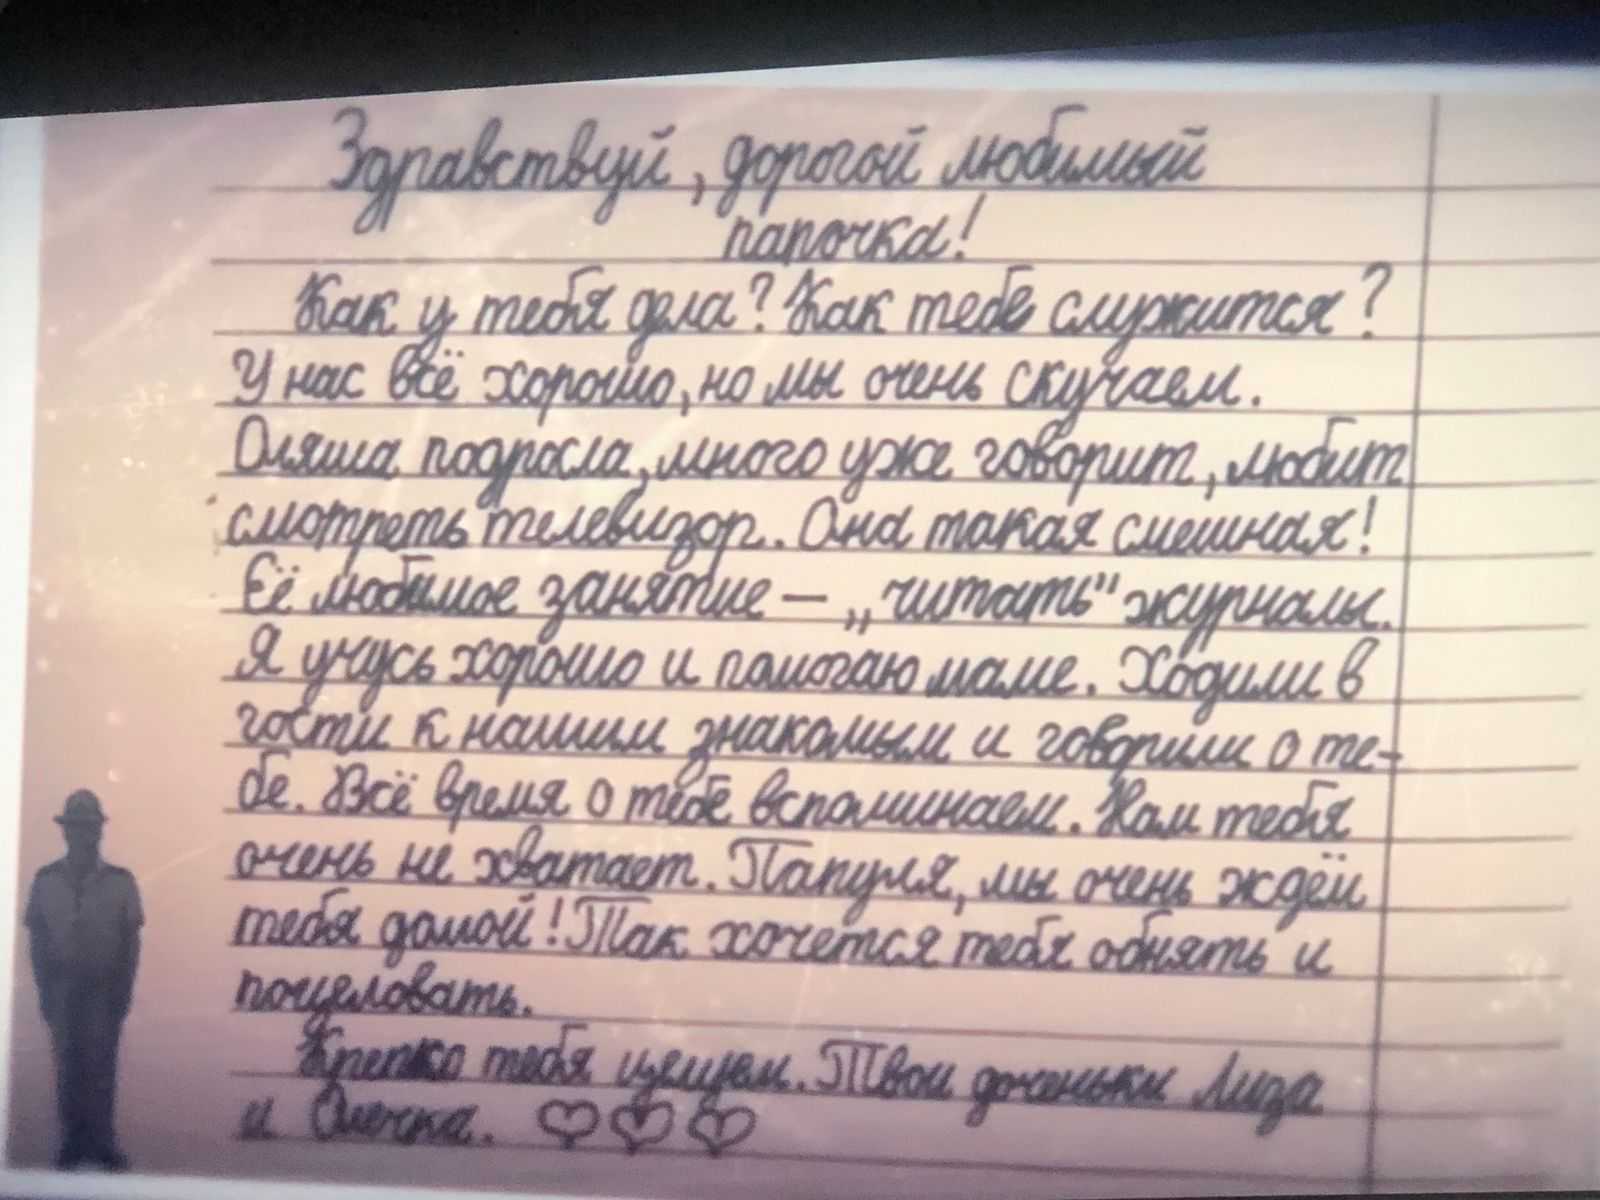 Здравствуй, дорогой любимый
папочка!
Как у тебя дела? Как тебе служится?
У нас всё хорошо, но мы очень скучаем.
Оляша подросла, много уже говорит, любит
смотреть телевизор. Она такая смешная!
Её любимое занятие – „читать" журналы.
Я учусь хорошо и помогаю маме. Ходили в
гости к нашим знакомым и говорили о те-
бе. Всё время о тебе вспоминаем. Нам тебя
очень не хватает. Папуля, мы очень ждём
тебя домой! Так хочется тебя обнять и
поцеловать.
Крепко тебя целуем. Твои доченьки Лиза
и Олечка.